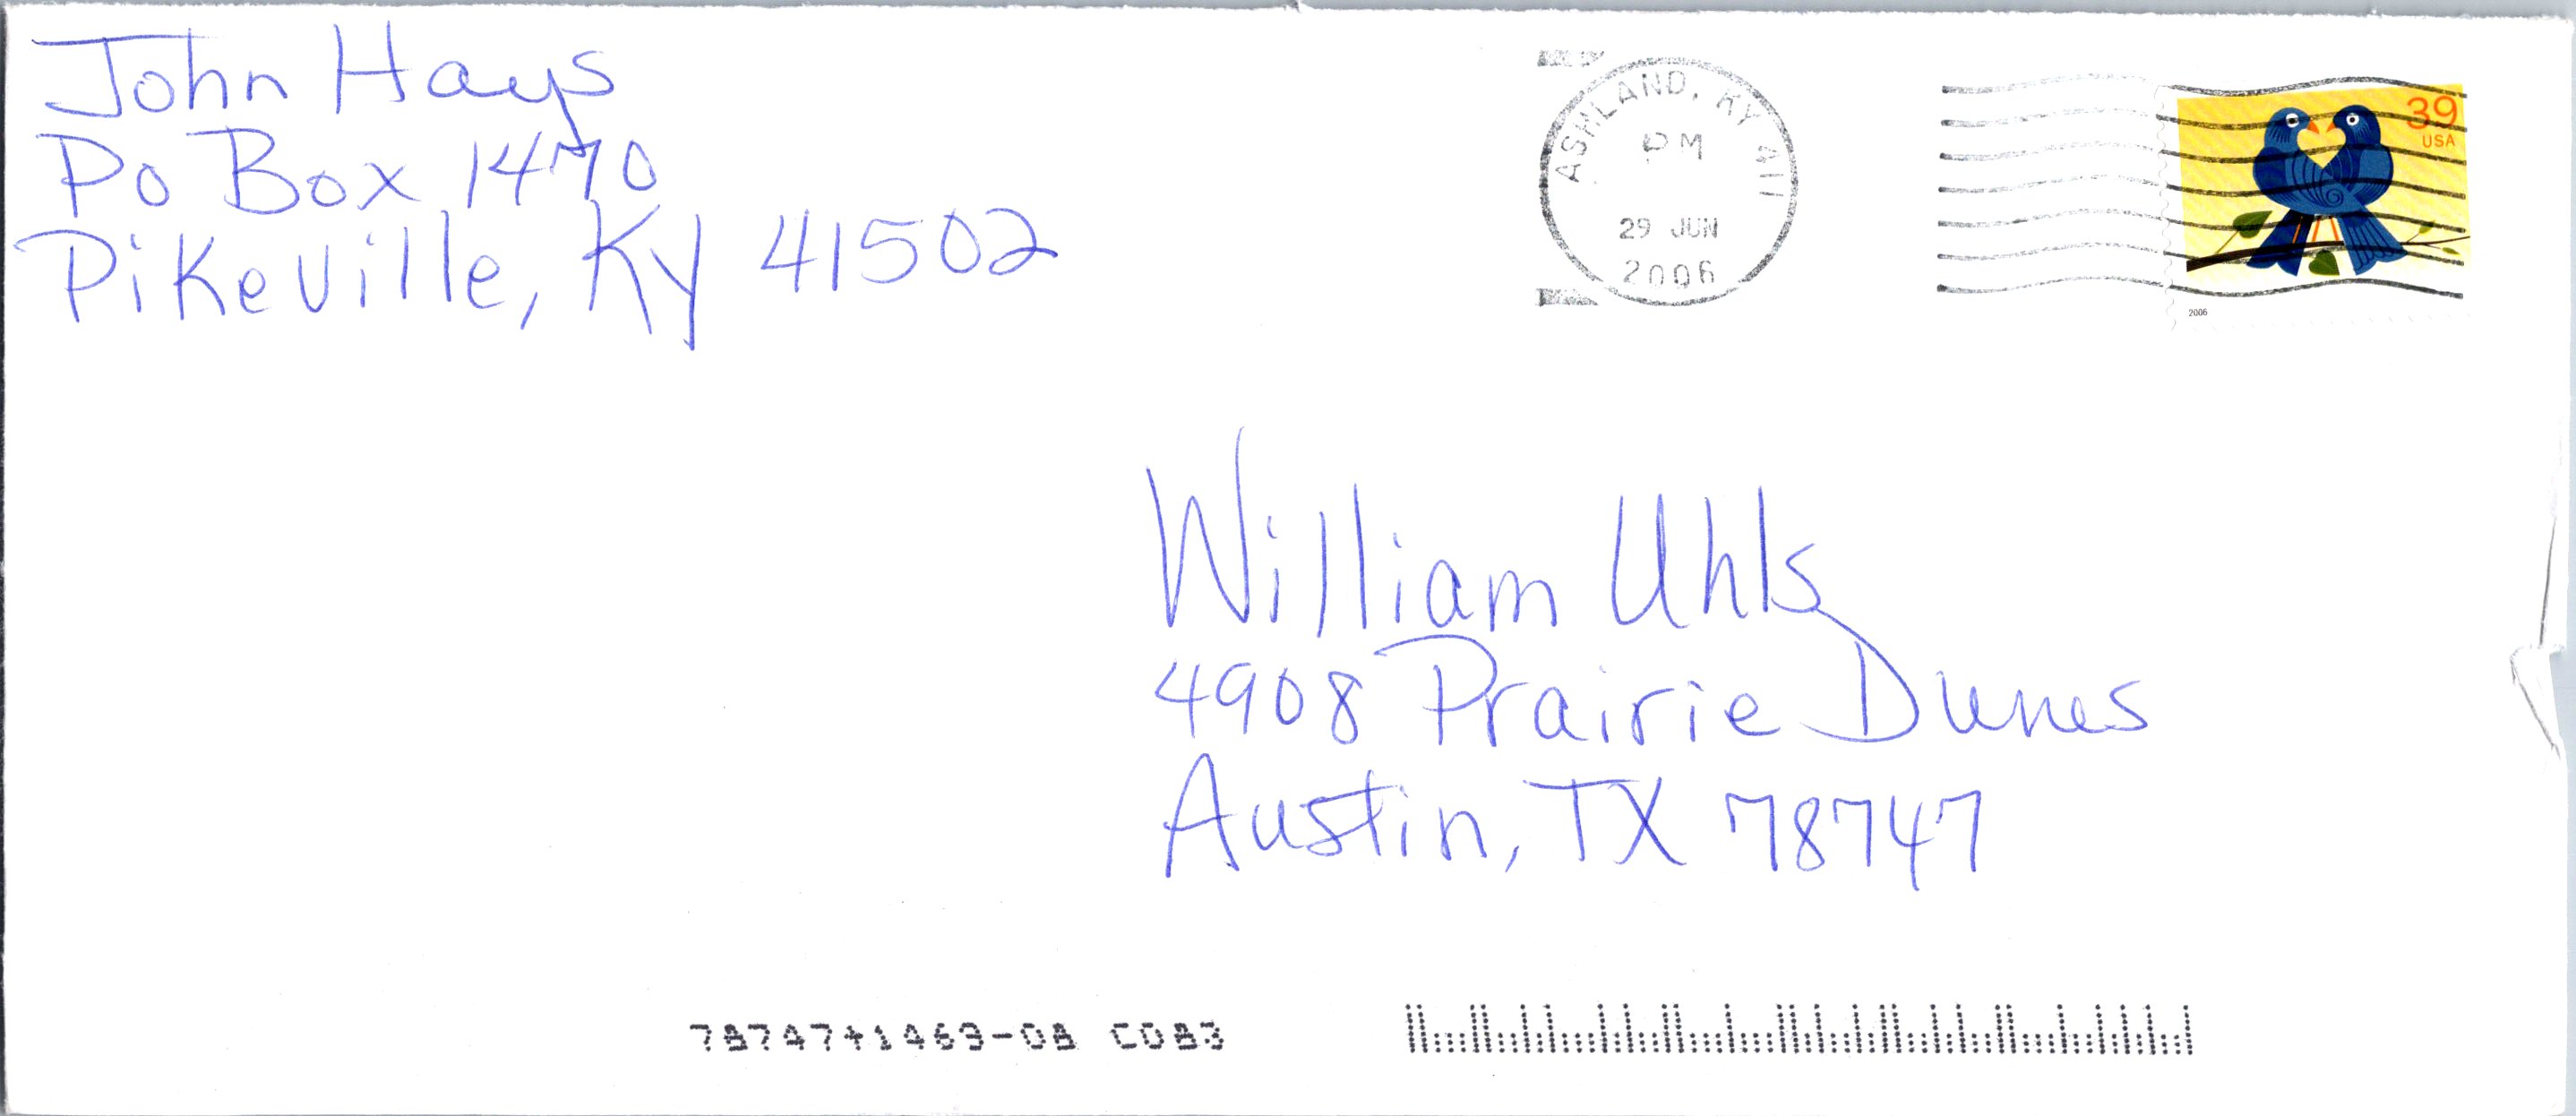 John Hays
Po Box 1470
Pikeville, Ky 41502
ASHLAND, KY 411
PM
29 JUN
2006
39
USA
2006
William Uhls
4908 Prairie Dunes
Austin, TX 78747
78747+1469-08 C083